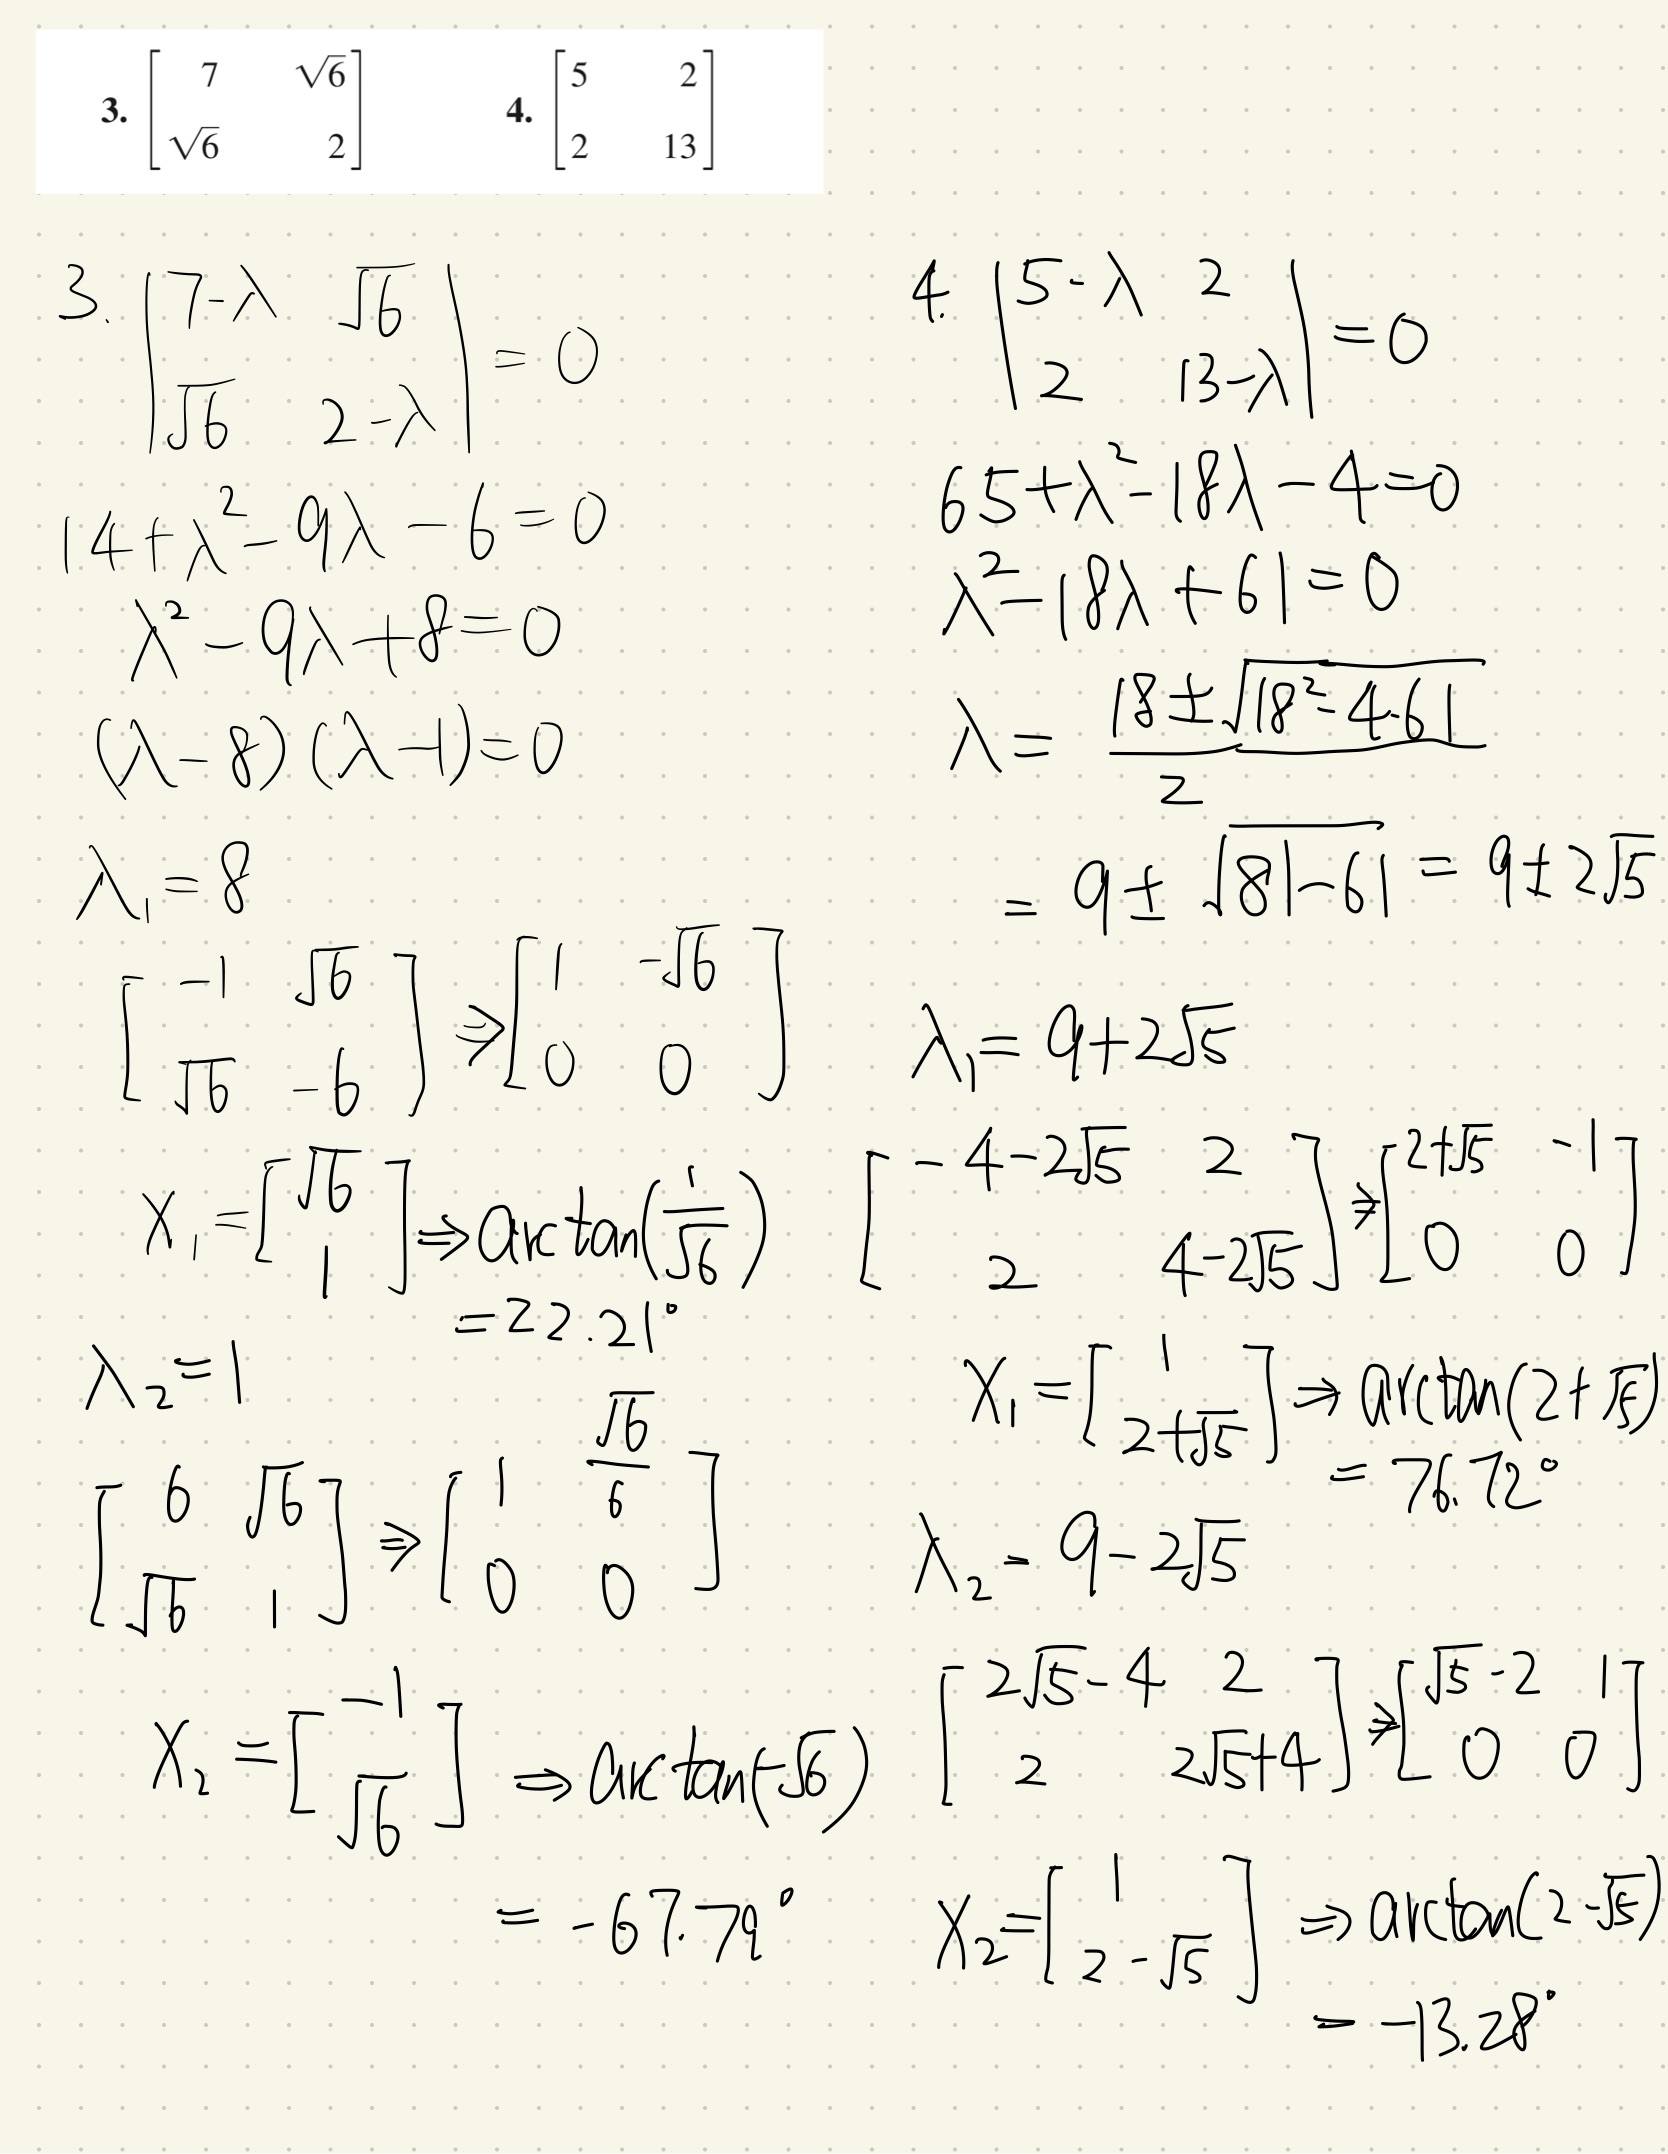 3. [7 √6; √6 2] 4. [5 2; 2 13]
3. |7-λ √6; √6 2-λ| = 0
14+λ²-9λ-6=0
λ²-9λ+8=0
(λ-8)(λ-1)=0
λ₁=8
[-1 √6; √6 -6] ⇒ [1 -√6; 0 0]
X₁=[√6; 1] ⇒ arctan(1/√6)
=22.21°
λ₂=1
[6 √6; √6 1] ⇒ [1 √6/6; 0 0]
X₂=[-1; √6] ⇒ arctan(-√6)
= -67.79°
4. |5-λ 2; 2 13-λ| = 0
65+λ²-18λ-4=0
λ²-18λ+61=0
λ= (18±√(18²-4·61))/2
= 9±√(81-61) = 9±2√5
λ₁=9+2√5
[-4-2√5 2; 2 4-2√5] ⇒ [2+√5 -1; 0 0]
X₁=[1; 2+√5] ⇒ arctan(2+√5)
= 76.72°
λ₂=9-2√5
[2√5-4 2; 2 2√5+4] ⇒ [√5-2 1; 0 0]
X₂=[1; 2-√5] ⇒ arctan(2-√5)
= -13.28°